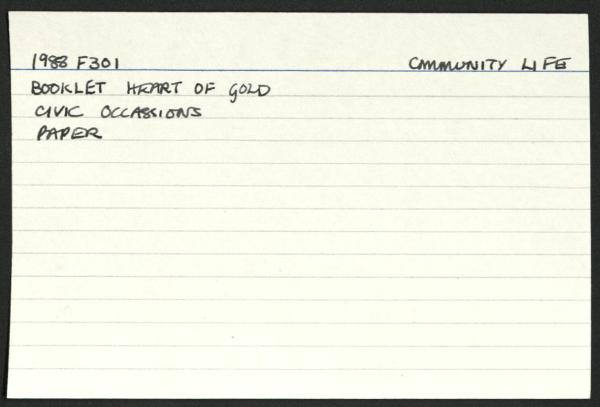 1988 F301 COMMUNITY LIFE
BOOKLET HEART OF GOLD
CIVIC OCCASSIONS
PAPER